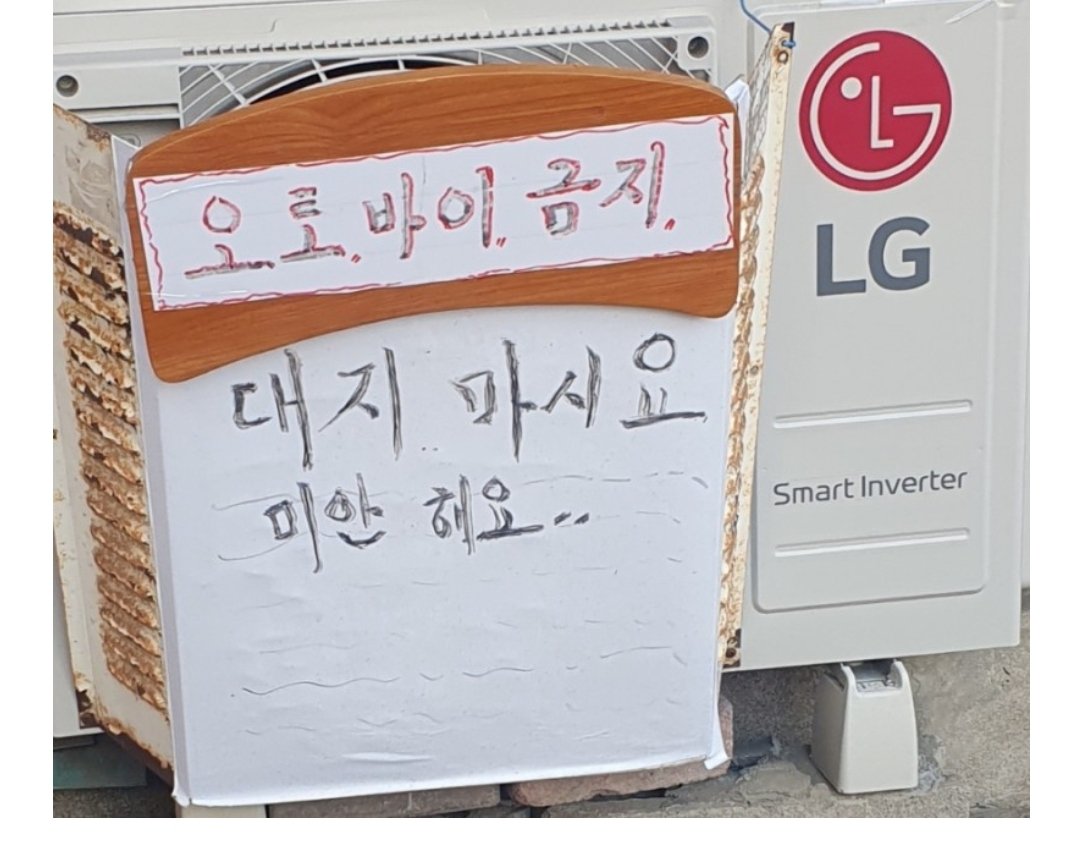 오토바이 금지
대지 마시요
미안 해요..
LG
Smart Inverter